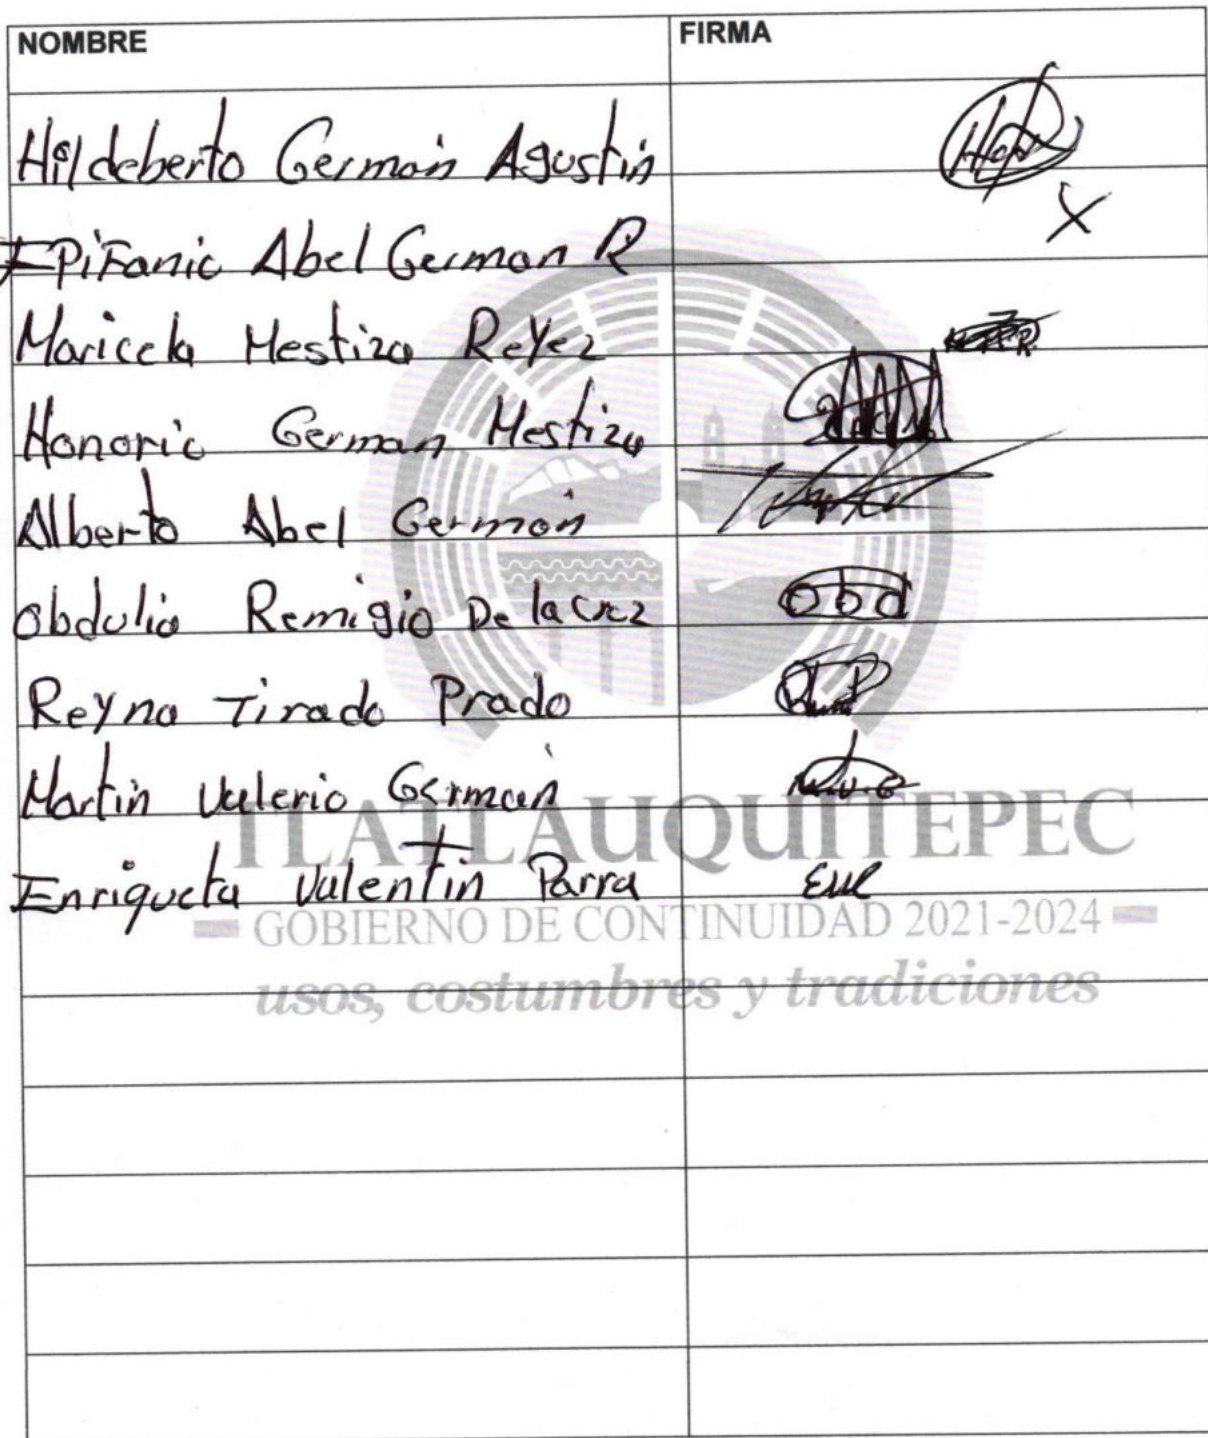 NOMBRE FIRMA
Hildeberto Germán Agustín
EPiFanio Abel German R X
Maricela Mestiza ReYez
Honorio German Mestizo
Alberto Abel Germán
obdulio Remigio De la Cruz obd
Reyna Tirado Prado
Martin Valerio Germán
Enriqueta Valentín Parra
TLATLAUQUITEPEC
GOBIERNO DE CONTINUIDAD 2021-2024
usos, costumbres y tradiciones